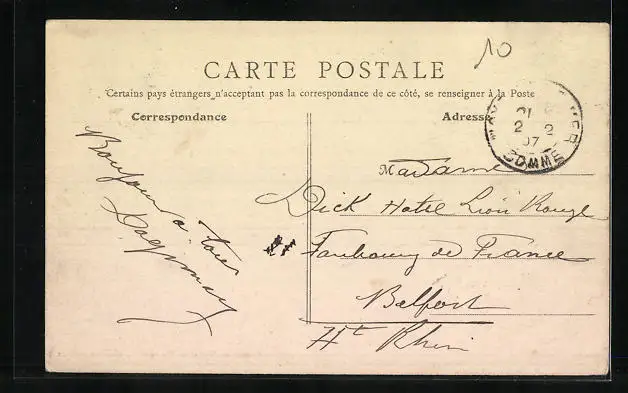 10
CARTE POSTALE
Certains pays étrangers n'acceptant pas la correspondance de ce côté, se renseigner à la Poste
Correspondance
Adresse
2 - 2
07
SOMME
Bonjour à tous
Madame
Dick Hotel Lion Rouge
Faubourg de France
Belfort
Ht Rhin